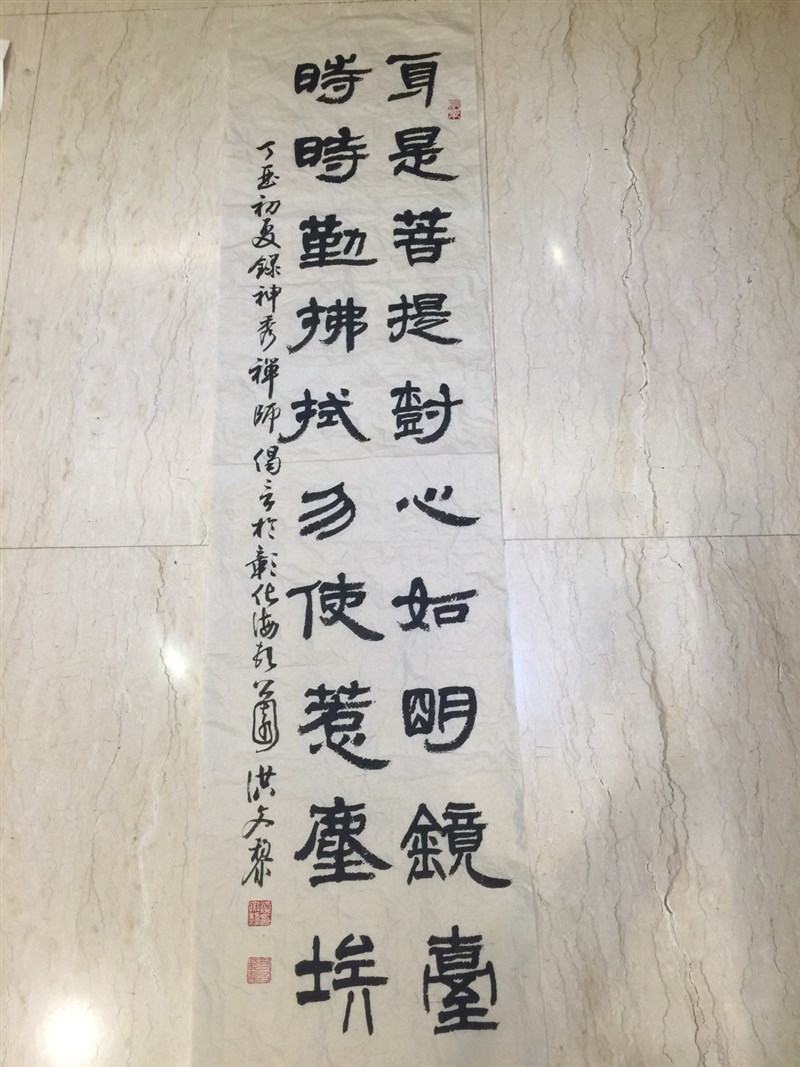 身是菩提樹心如明鏡臺
時時勤拂拭勿使惹塵埃
丁酉初夏錄神秀禪師偈言於彰化 洪文黎